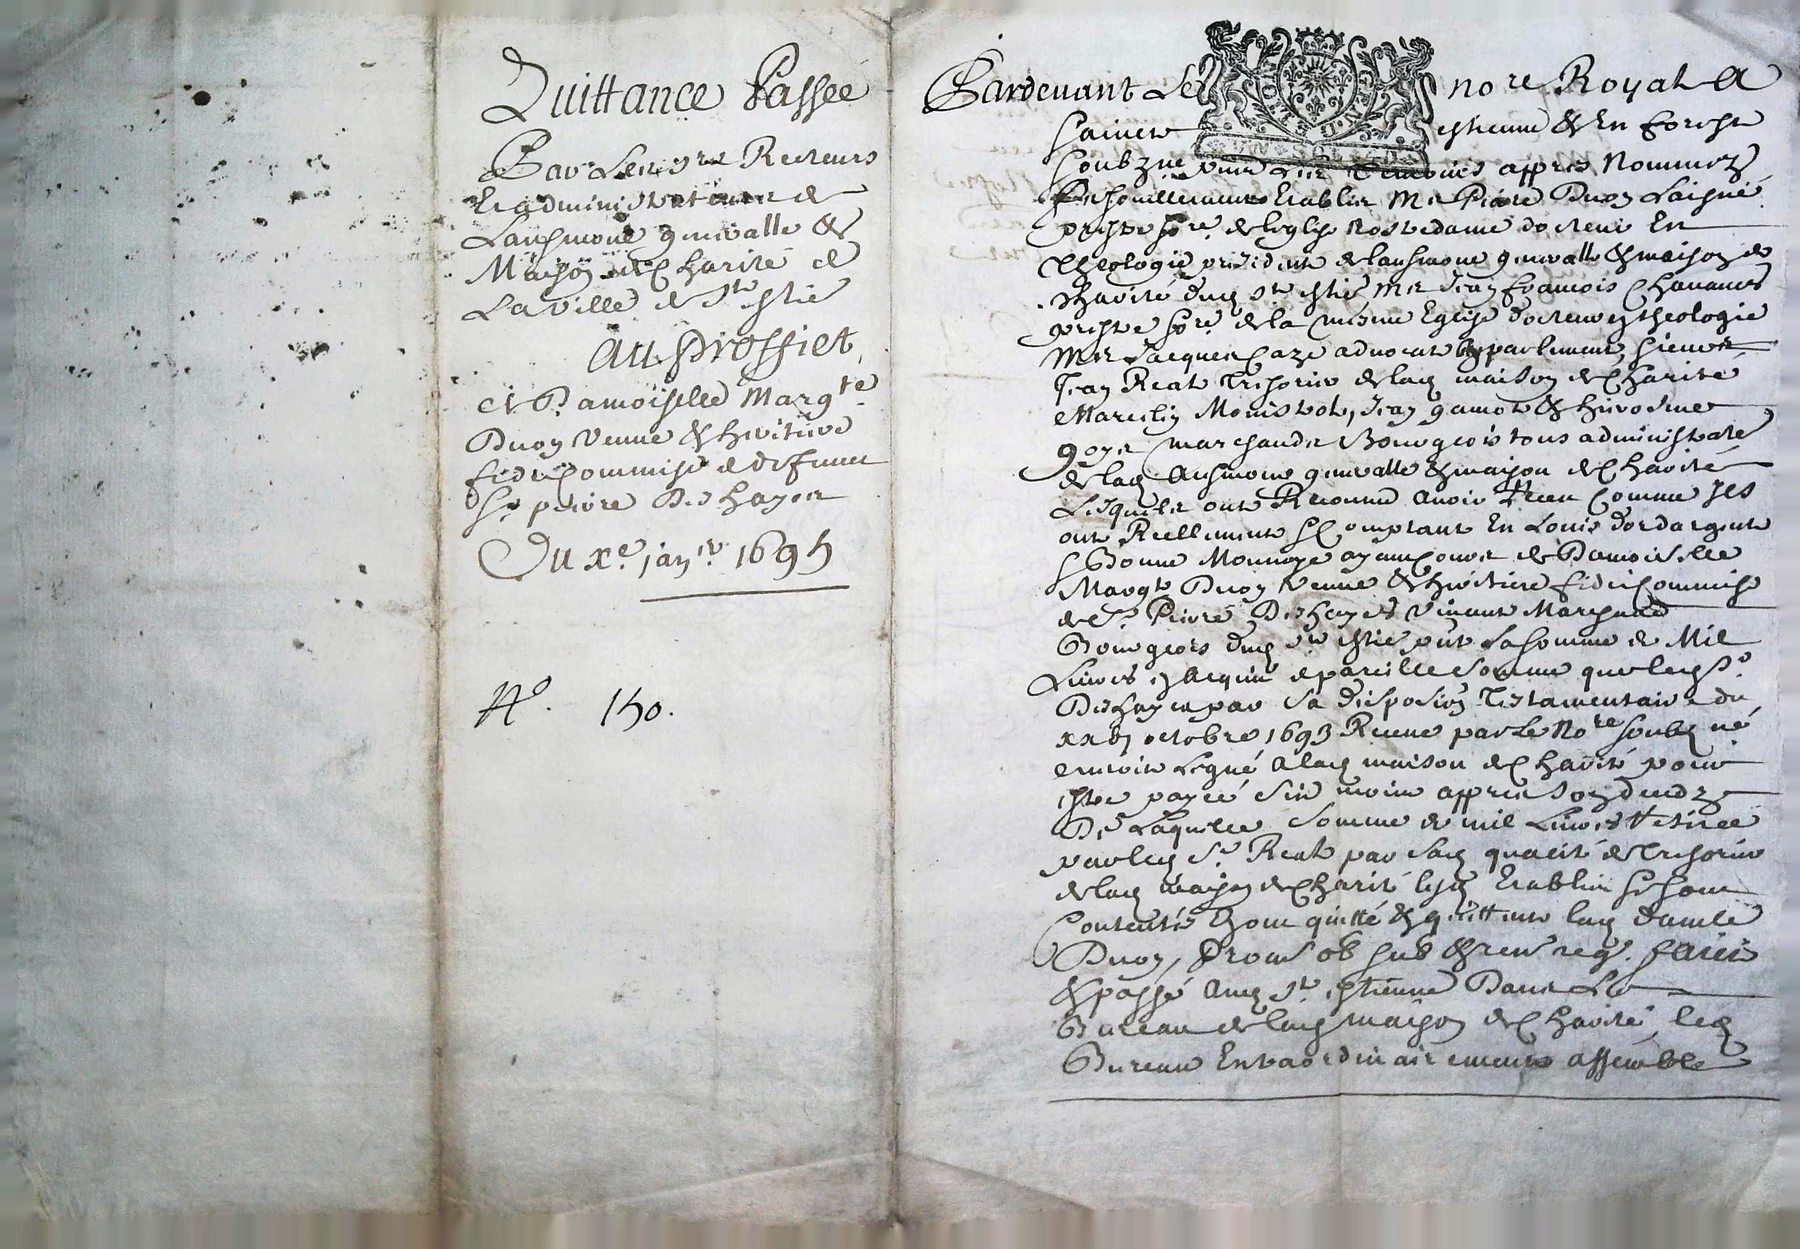 Quittance Passée
Par Les srs Recteurs
Et administrateurs de
Lausmone generalle &
Maison de Charité de
La Ville de St Estie
Au Proffict
de Damoiselle Margte
Duon Veuve & heritiere
fideicommise de deffunct
Sr pierre Deshayes
Du xe. janer. 1695
No. 150.
Pardevant Le nore Royal A
Sainct Estienne & En forest
Soubzne
Mre Pierre Duon Laisné
prestre de leglise Nostredame docteur En
Theologie president de lausmone generalle & maison de
Charité dud St Estie, Mre Jean francois Chauanes
prestre de la mesme Eglise docteur en theologie
Mre Jacques Caze advocat En parlement, sieurs
Jean Reat Tresorier de lad maison de Charité
Marcelin Monistrol, Jean gamot & hierosme
marchands Bourgeois tous administrateurs
de lad Ausmone generalle & maison de Charité
Lesquels ont Reconnu avoir Receu Comme Ils
ont Reellement Comptant En Louis dor dargent
Bonne Monnoye ayant Cours de Damoiselle
Margte Duon veuve & heritiere fideicommise
de Sr. Pierre Deshayes Vivant Marchand
Bourgeois dud St Estie La somme de Mil
Livres pareille somme que led Sr.
Deshayes par sa disposion Testamentaire du
octobre 1693 Receue par Le Nore soubzne
Legué A lad maison de Charité pour
estre payée Six mois appres son decedz
De Laquelle somme de mil Livres Retirée
par led Sr. Reat par sad qualité de Tresorier
de lad maison de Charité
Contentés quitté & quittent lad damlle
Duon, Prom ob sub & ren req. faict
& passé Aud St. Estienne Dans Le
Bureau de lad maison de Charité, led
Bureau Extraordinairement assemblé